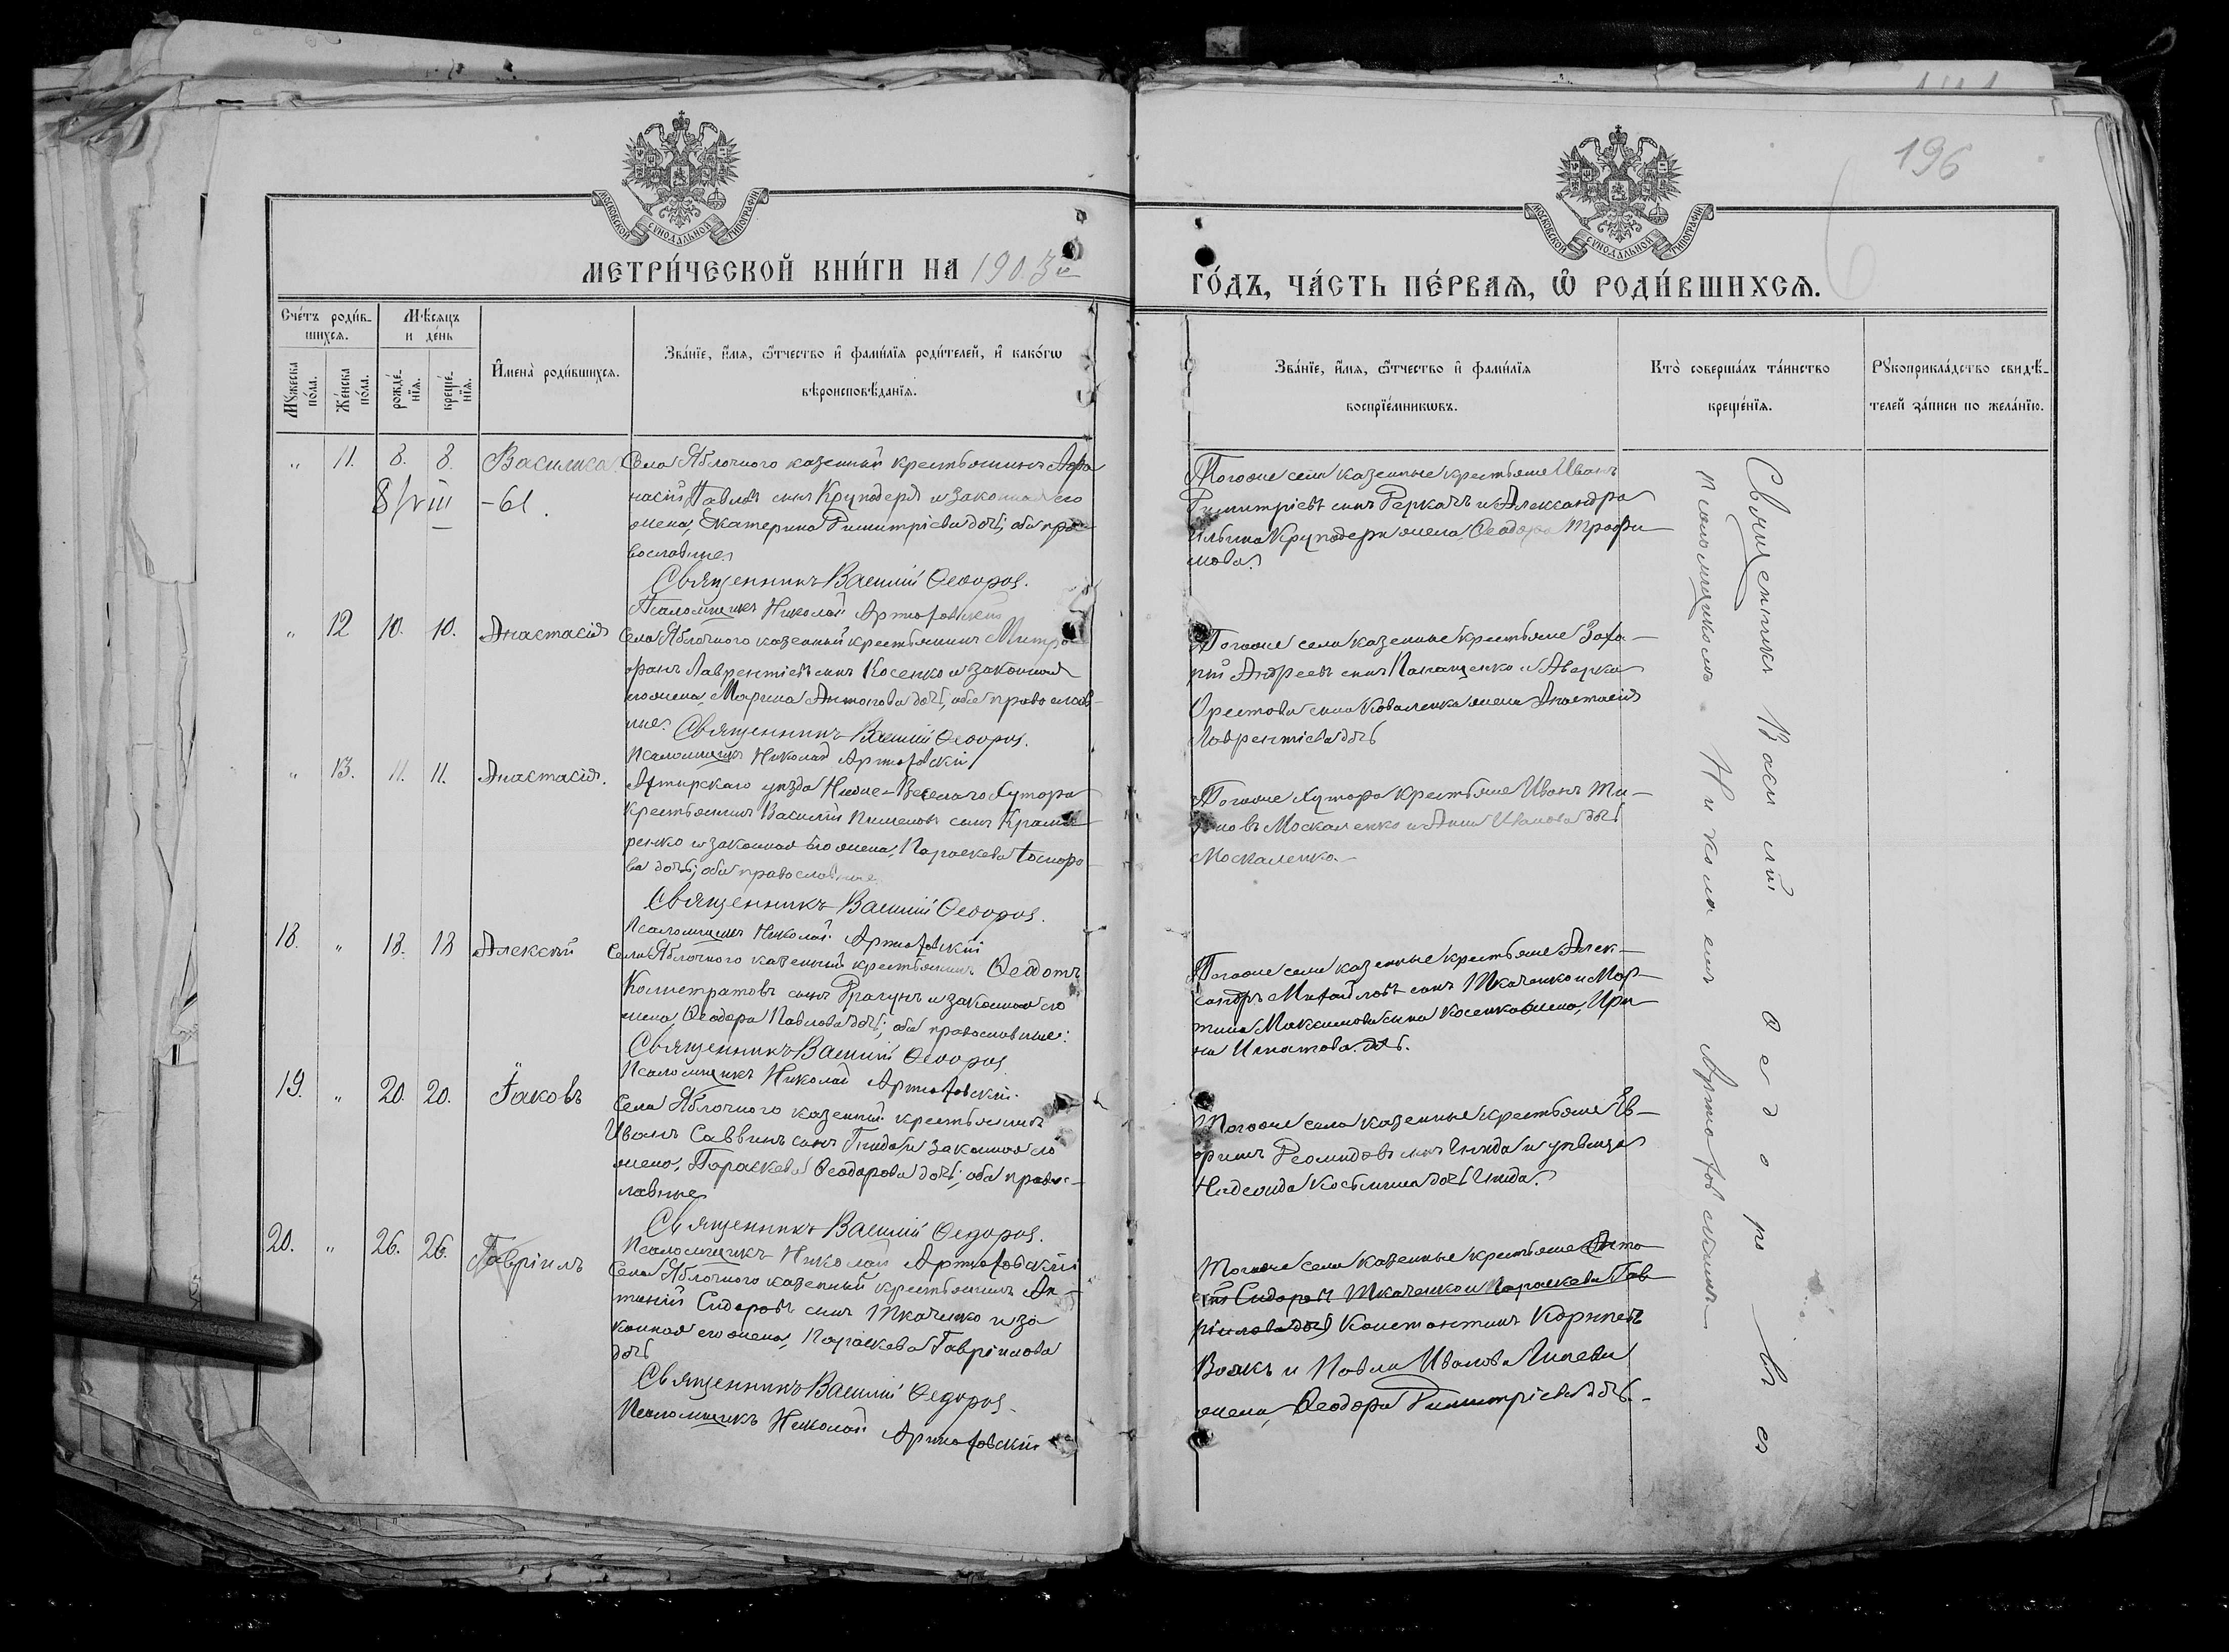 196
МОСКОВСКОЙ СУНОДАЛЬНОЙ ТИПОГРАФИИ
МОСКОВСКОЙ СУНОДАЛЬНОЙ ТИПОГРАФИИ
МЕТРИ́ЧЕСКОЙ КНИ́ГИ НА 1903й
ГО́ДЪ, ЧА́СТЬ ПЕ́РВАѦ, Ѽ РОДИ́ВШИХСѦ.
Сче́тъ роди́в-
шихсѧ.
Мꙋ́жеска по́ла.
Же́нска по́ла.
Мѣ́сѧцъ
и де́нь
рожде́-
нїѧ.
креще́-
нїѧ.
И҆мена̀ роди́вшихсѧ.
Зва́нїе, и҆́мѧ, ѻ҆́тчество и҆ фами́лїѧ роди́телей, и҆ како́гѡ
вѣроисповѣ́данїѧ.
Зва́нїе, и҆́мѧ, ѻ҆́тчество и҆ фами́лїѧ
воспрїе́мникѡвъ.
Кто̀ соверша́лъ та́инство
креще́нїѧ.
Рꙋкоприкла́дство свидѣ́-
телей за́писи по жела́нїю.
" 11. 8. 8. Василиса
8/VIII -61.
Села Яблочнаго казенный крестьянинъ Афа
насій Павловъ сынъ Круподеря и законная его
жена, Екатерина Димитріева дочь; оба пра
вославные
Священникъ Василій Ѳедоровъ.
Псаломщикъ Николай Артюховскій
Тогоже села казенные крестьяне Иванъ
Димитріевъ сынъ Деркачъ и Александра
Ильина Круподери жена Ѳеодора Трофи
мова.
" 12 10. 10. Анастасія
Села Яблочнаго казенный крестьянинъ Митро
фанъ Лаврентіевъ сынъ Косенко и законная
его жена, Марина Антонова дочь, оба православ-
ные. Священникъ Василій Ѳедоровъ.
Псаломщикъ Николай Артюховскій
Тогоже села казенные крестьяне Заха-
рій Андреевъ сынъ и
Орестова сына Коваленка жена Анастасія
Лаврентіева дочь
" 13. 11. 11. Анастасія.
Ахтырскаго уѣзда Ниже-Веселаго Хутора
крестьянинъ Василій сынъ Крама
ренко и законная его жена, Параскева
ва дочь; оба православные
Священникъ Василій Ѳедоровъ.
Псаломщикъ Николай Артюховскій
Тогоже Хутора крестьяне Иванъ
Москаленко и Анна Иванова дочь
Москаленко.
18. " 18. 18 Алексѣй
Села Яблочнаго казенный крестьянинъ Ѳеодотъ
Калистратовъ сынъ Драгунъ и законная его
жена, Ѳеодора Павлова дочь; оба православные:
Священникъ Василій Ѳедоровъ
Псаломщикъ Николай Артюховскій
Тогоже села казенные крестьяне Алек-
сандръ Михайловъ сынъ Ткаченко и Мар-
тина Максимова сына Косенка жена, Ири-
на Игнатова дочь.
19. " 20. 20. Іаковъ
Села Яблочнаго казенный крестьянинъ
Иванъ Саввинъ сынъ Гнида и законная его
жена, Параскева Ѳеодорова дочь; оба правос-
лавные
Священникъ Василій Ѳедоровъ.
Псаломщикъ Николай Артюховскій
Тогоже села казенные крестьяне
сынъ Гнида и дѣвица
Надежда Косьмина дочь Гнида.
20. " 26. 26. Гавріилъ
Села Яблочнаго казенный крестьянинъ Ан-
тоній Сидоровъ сынъ Ткаченко и за
конная его жена, Параскева Гавріилова
дочь
Священникъ Василій Ѳедоровъ
Псаломщикъ Николай Артюховскій
Тогоже села казенные крестьяне Анто
ній Сидоровъ Ткаченко и Параскева Гав
ріилова дочь Константинъ
и Павла Иванова
жена, Ѳеодора Димитріева дочь.
Священникъ Василій Ѳедоровъ съ
псаломщикомъ Николаемъ Артюховскимъ